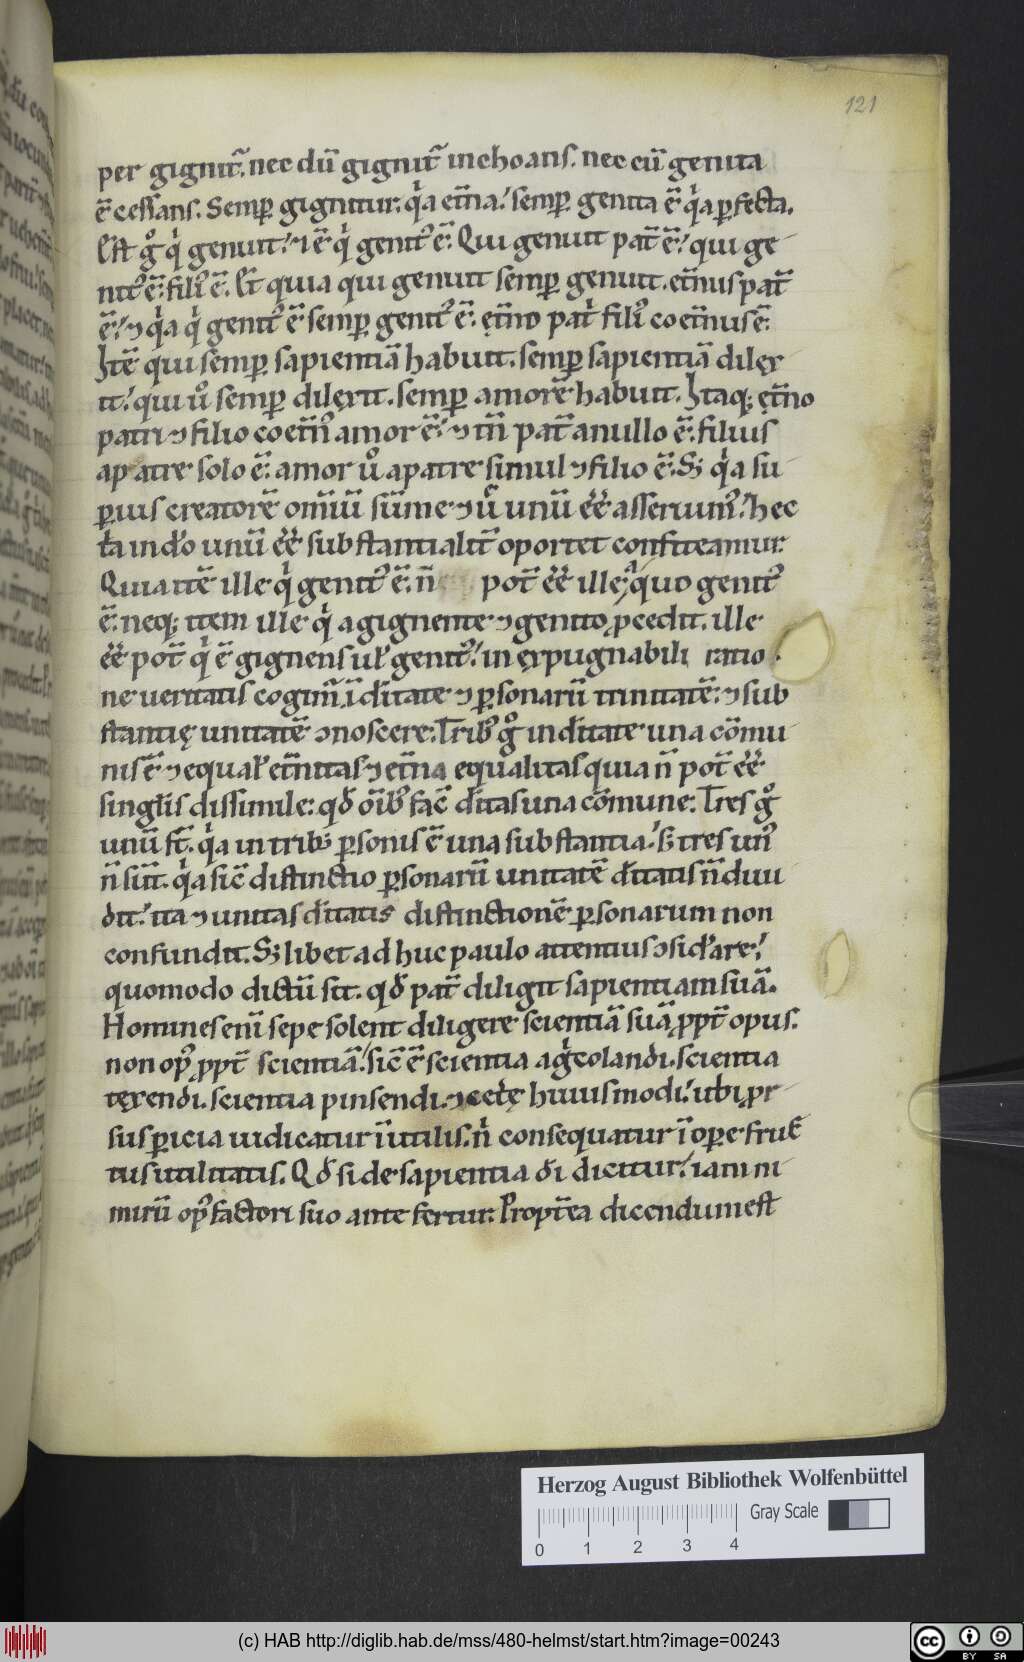 121
per gignit᷑. nec dū gignit᷑ inchoans. nec cū genita
ē cessans. Semꝑ gignitur. qͥa et̄na. semꝑ genita ē qͥa ꝑfecta.
Est gͦ qͥ genuit. ⁊ ē qͥ genitꝰ ē. Qui genuit pat̄ ē. qui ge
nitꝰ ē. filiꝰ ē. Et quia qui genuit semꝑ genuit. et̄nus pat̄
ē. ⁊ qͥa qͥ genitꝰ ē semꝑ genitꝰ ē. ęt̄no patͥ filiꝰ coet̄nus ē.
Itē qui semꝑ sapientiā habuit. semꝑ sapientiā dilex
it. qui uͦ semꝑ dilexit. semꝑ amorē habuit. Itaq; ęt̄no
patri ⁊ filio coet̄nꝰ amor ē. ⁊ tn̄ pat̄ a nullo ē. filius
a patre solo ē. amor uͦ a patre simul ⁊ filio ē. Sꝫ qͥa su
ꝑius creatorē omīū sūme ⁊ uͤ unū ēē asseruimꝰ. hec
tͥa in dō unū ēē substantialit̄ oportet confiteamur.
Quia itē ille qͥ genitꝰ ē. n̄ pot̄ ēē ille, a quo genitꝰ
ē. neq; item ille qͥ a gignente ⁊ genito ꝓcedit. ille
ēē pot̄ qͥ ē gignens uł genitꝰ. inexpugnabili ratio
ne ueritatis cogim᷑ ī dītate ⁊ ꝑsonarū trinitatē. ⁊ sub
stantię unitatē ↄnoscere. Tribꝰ gͦ in dītate una cōmu
nis ē ⁊ equał et̄nitas ⁊ et̄na equalitas quia n̄ pot̄ ēē
singłis dissimile. qđ oībꝰ fac̄ dītas una cōmune. Tres gͦ
unū st̄. qͥa in tribꝫ ꝑsonis ē una substantia. sꝫ tres unꝰ
n̄ sūt. qͥa sic̄ distinctio ꝑsonarū unitatē dītatis n̄ diui
dit. ita ⁊ unitas dītatis distinctionē ꝑsonarum non
confundit. Sꝫ libet adhuc paulo attentius ↄsid̄are.
quomodo dictū sit. qđ pat̄ diligit sapientiam suā.
Homines enī sepe solent diligere scientiā suā ꝓpt̄ opus.
non opꝰ ꝓpt̄ scientiā. sic̄ ē scientia agͥcolandi. scientia
texendi. scientia pinsendi. ⁊ cet̄ę huiusmodi. ubi ꝓr
sus ꝑicia iudicatur īutilis. nͥ consequatur ī oꝑe fruc
tus utilitatis. Qđ si de sapientia di dicitur. iam ni
mirū opꝰ factori suo antefertur. Propt̄ea dicendum est
Herzog August Bibliothek Wolfenbüttel
Gray Scale
0 1 2 3 4
(c) HAB http://diglib.hab.de/mss/480-helmst/start.htm?image=00243
cc BY SA